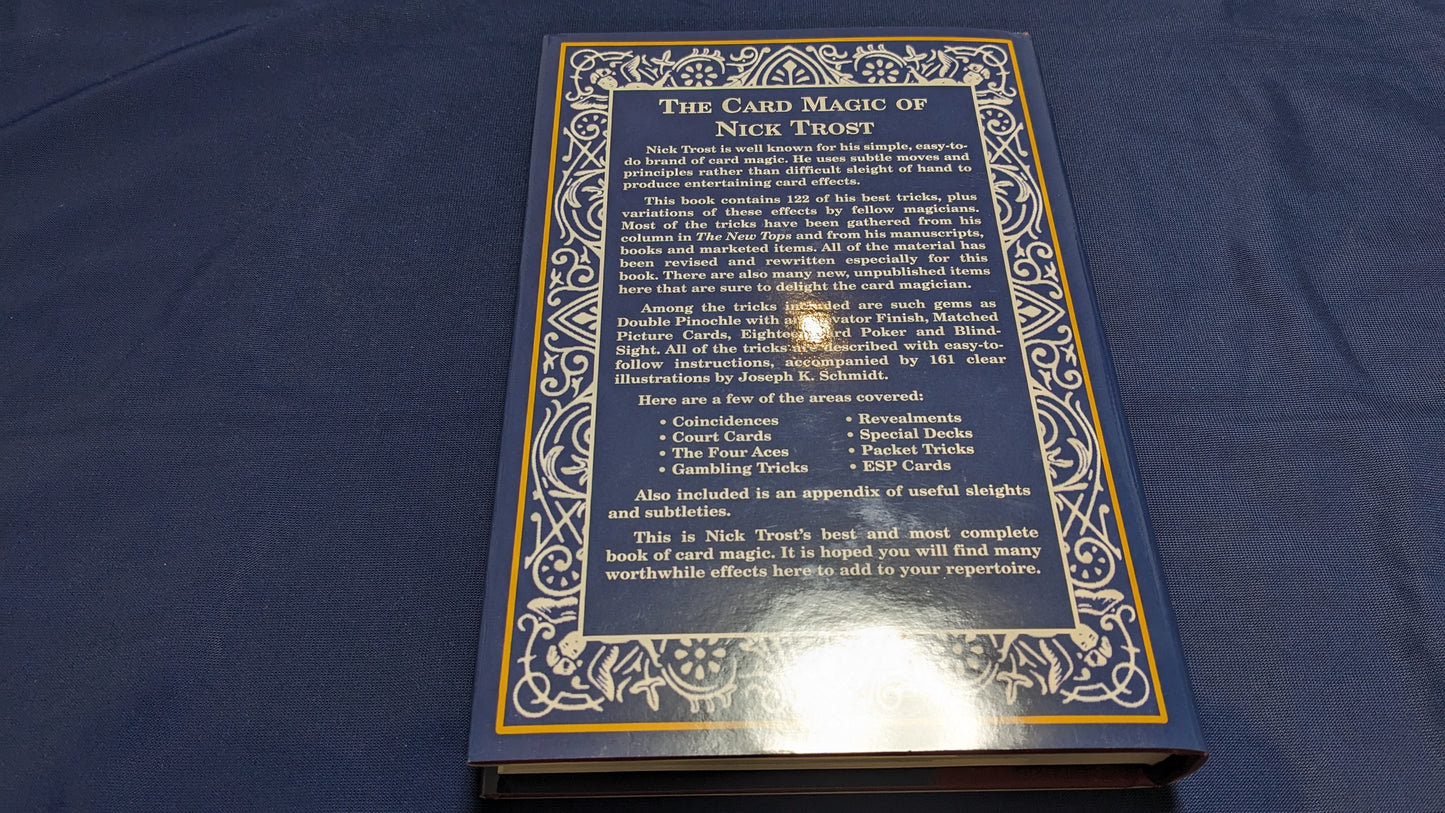 THE CARD MAGIC OF
NICK TROST
Nick Trost is well known for his simple, easy-to-
do brand of card magic. He uses subtle moves and
principles rather than difficult sleight of hand to
produce entertaining card effects.
This book contains 122 of his best tricks, plus
variations of these effects by fellow magicians.
Most of the tricks have been gathered from his
column in The New Tops and from his manuscripts,
books and marketed items. All of the material has
been revised and rewritten especially for this
book. There are also many new, unpublished items
here that are sure to delight the card magician.
Among the tricks included are such gems as
Double Pinochle with an Elevator Finish, Matched
Picture Cards, Eighteen Card Poker and Blind-
Sight. All of the tricks are described with easy-to-
follow instructions, accompanied by 161 clear
illustrations by Joseph K. Schmidt.
Here are a few of the areas covered:
• Coincidences • Revealments
• Court Cards • Special Decks
• The Four Aces • Packet Tricks
• Gambling Tricks • ESP Cards
Also included is an appendix of useful sleights
and subtleties.
This is Nick Trost's best and most complete
book of card magic. It is hoped you will find many
worthwhile effects here to add to your repertoire.